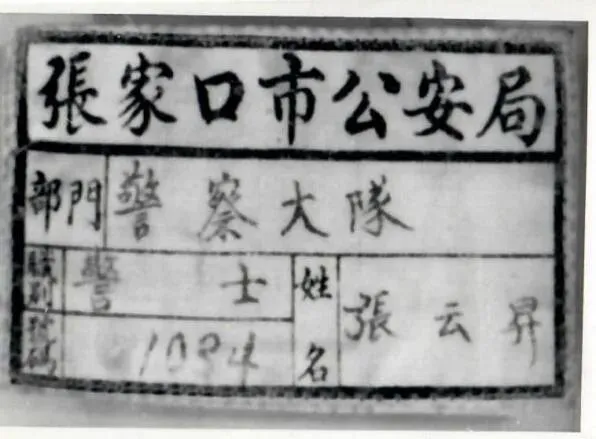 張家口市公安局
部門 警察大隊
職別 警士
號碼 1034
姓名 張云昇